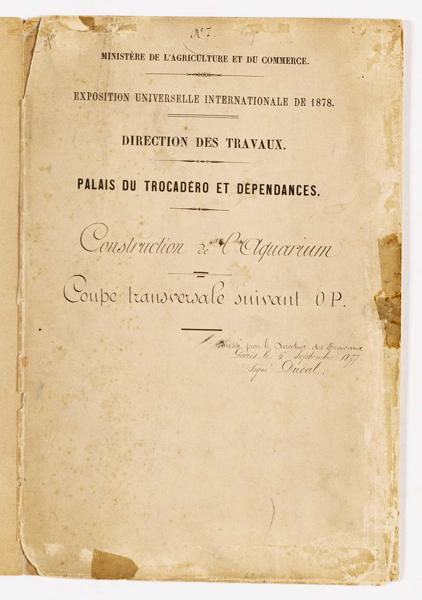 Nº 7.
MINISTÈRE DE L'AGRICULTURE ET DU COMMERCE.
EXPOSITION UNIVERSELLE INTERNATIONALE DE 1878.
DIRECTION DES TRAVAUX.
PALAIS DU TROCADÉRO ET DÉPENDANCES.
Construction de l'Aquarium
Coupe transversale suivant O P.
Dressé par le Directeur des Travaux
Paris le 5 Septembre 1877
Signé Duval.